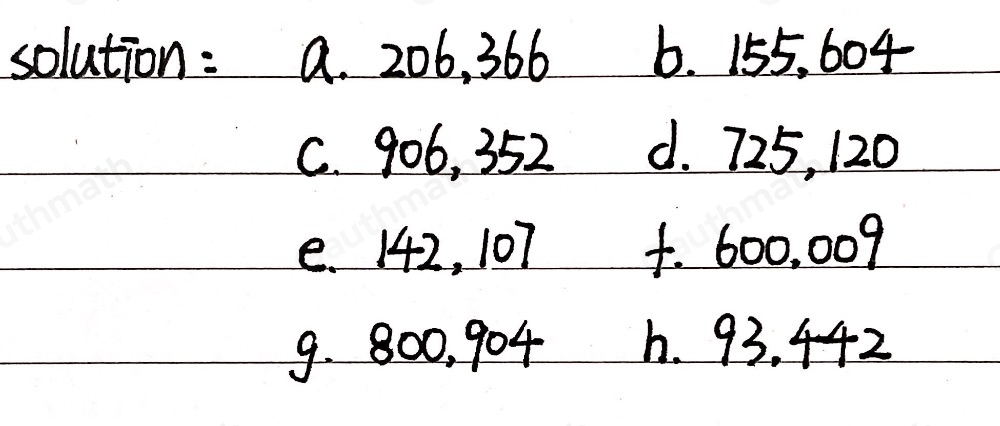 solution: a. 206,366 b. 155,604
c. 906,352 d. 725,120
e. 142,107 f. 600,009
g. 800,904 h. 93,442